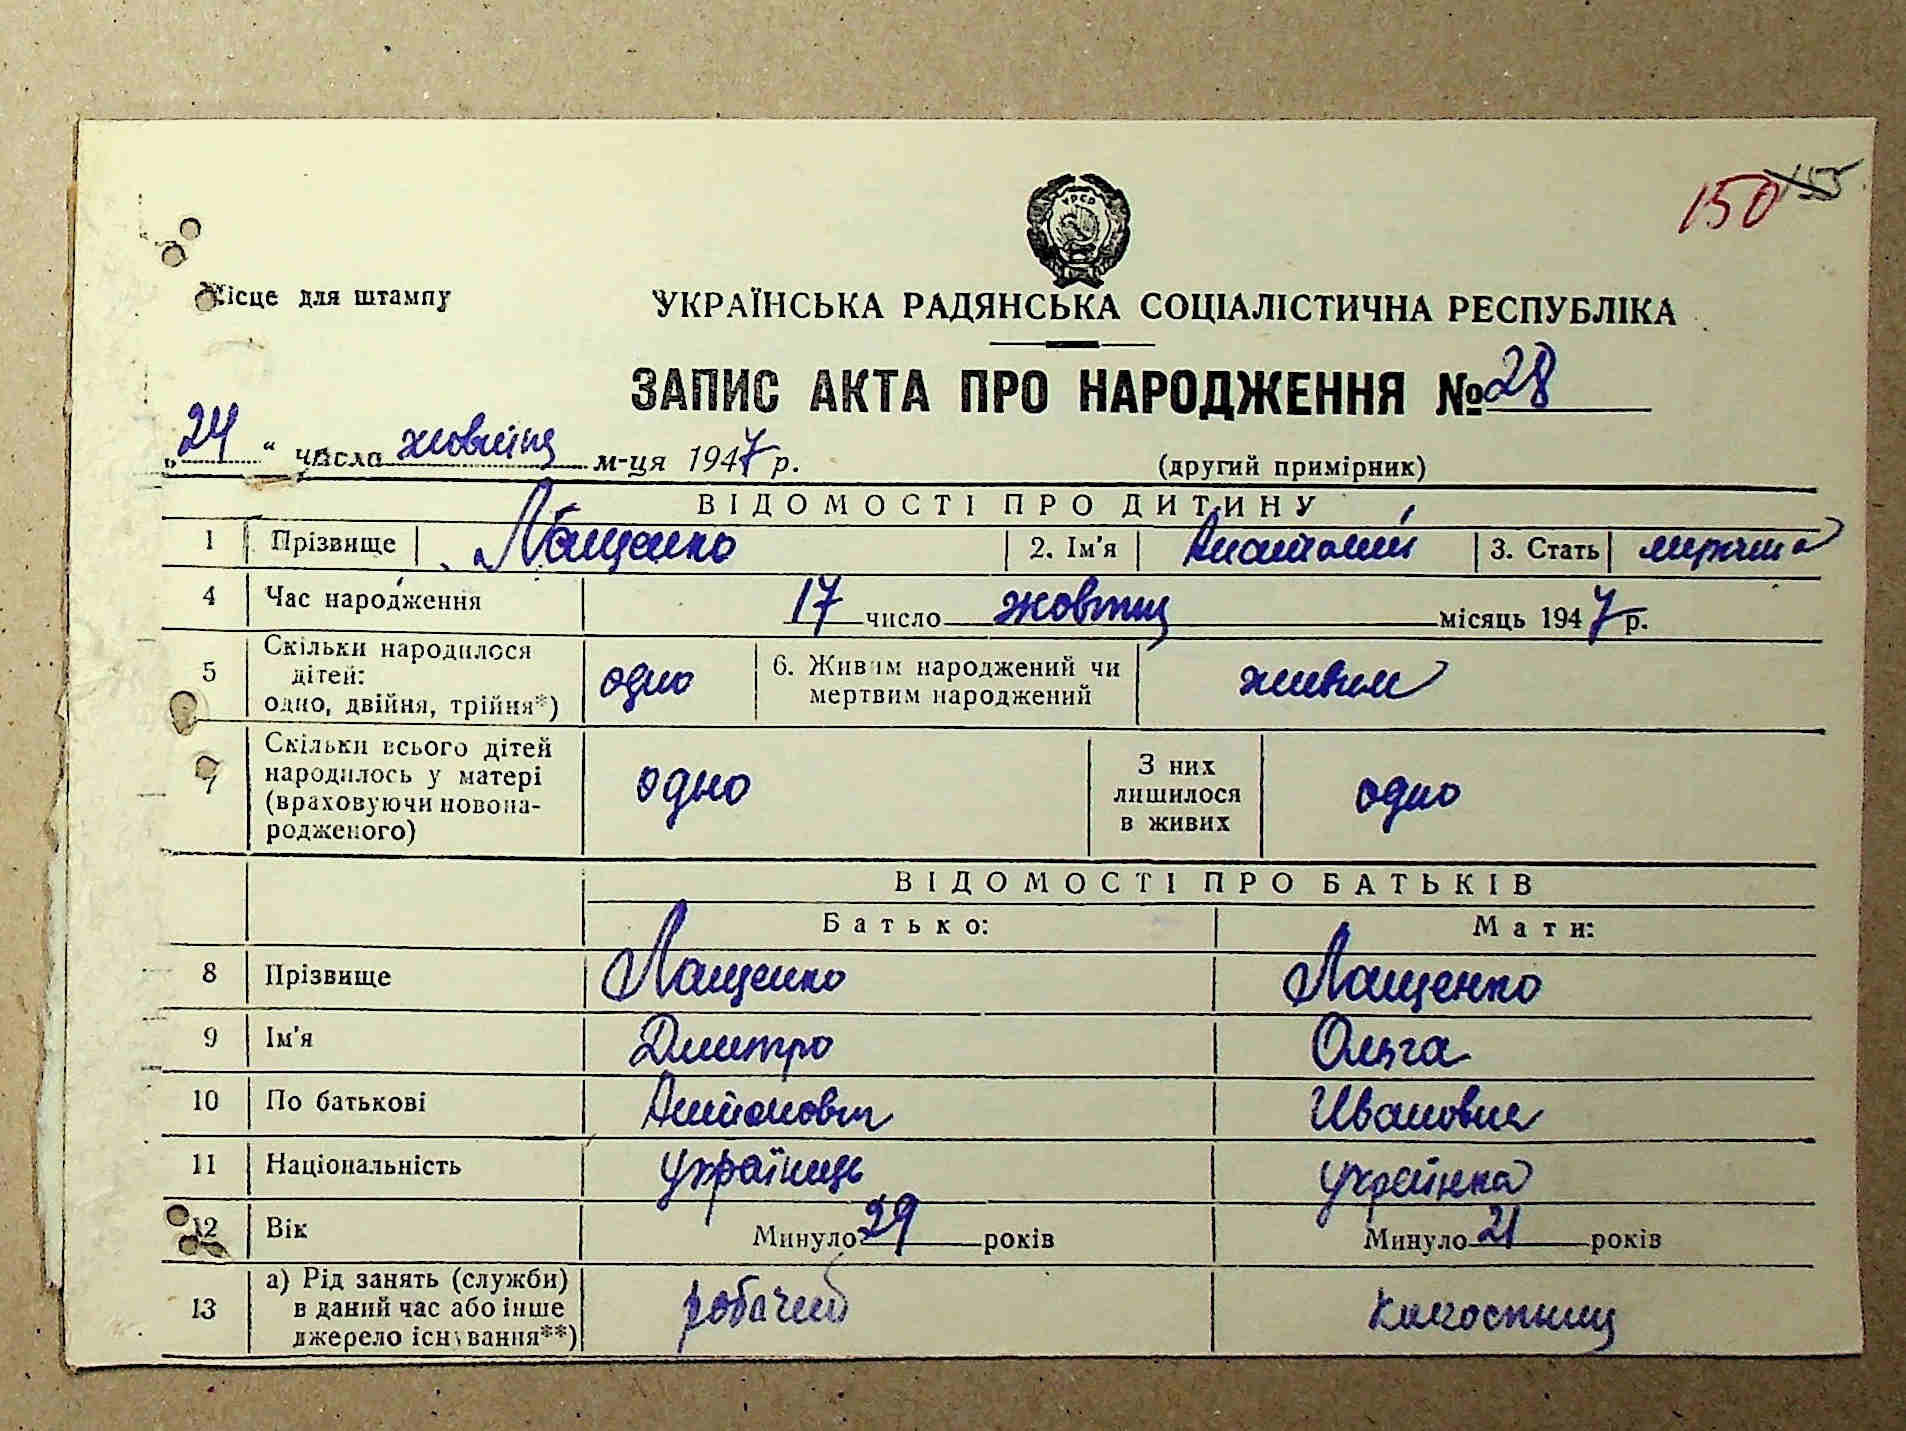 150 155
УРСР
Місце для штампу
УКРАЇНСЬКА РАДЯНСЬКА СОЦІАЛІСТИЧНА РЕСПУБЛІКА
ЗАПИС АКТА ПРО НАРОДЖЕННЯ № 28
„24“ числа жовтня м-ця 1947 р.
(другий примірник)
ВІДОМОСТІ ПРО ДИТИНУ
1 Прізвище Лащенко 2. Ім'я Анатолий 3. Стать
4 Час народження 17 число жовтня місяць 1947 р.
5 Скільки народилося
дітей:
одно, двійня, трійня*) одно 6. Живим народжений чи
мертвим народжений живим
7 Скільки всього дітей
народилось у матері
(враховуючи новона-
родженого) одно З них
лишилося
в живих одно
ВІДОМОСТІ ПРО БАТЬКІВ
Батько: Мати:
8 Прізвище Лащенко Лащенко
9 Ім'я Дмитро Ольга
10 По батькові Антонович Ивановна
11 Національність українець українка
12 Вік Минуло 29 років Минуло 21 років
13 а) Рід занять (служби)
в даний час або інше
джерело існування**) робачий колгоспниця